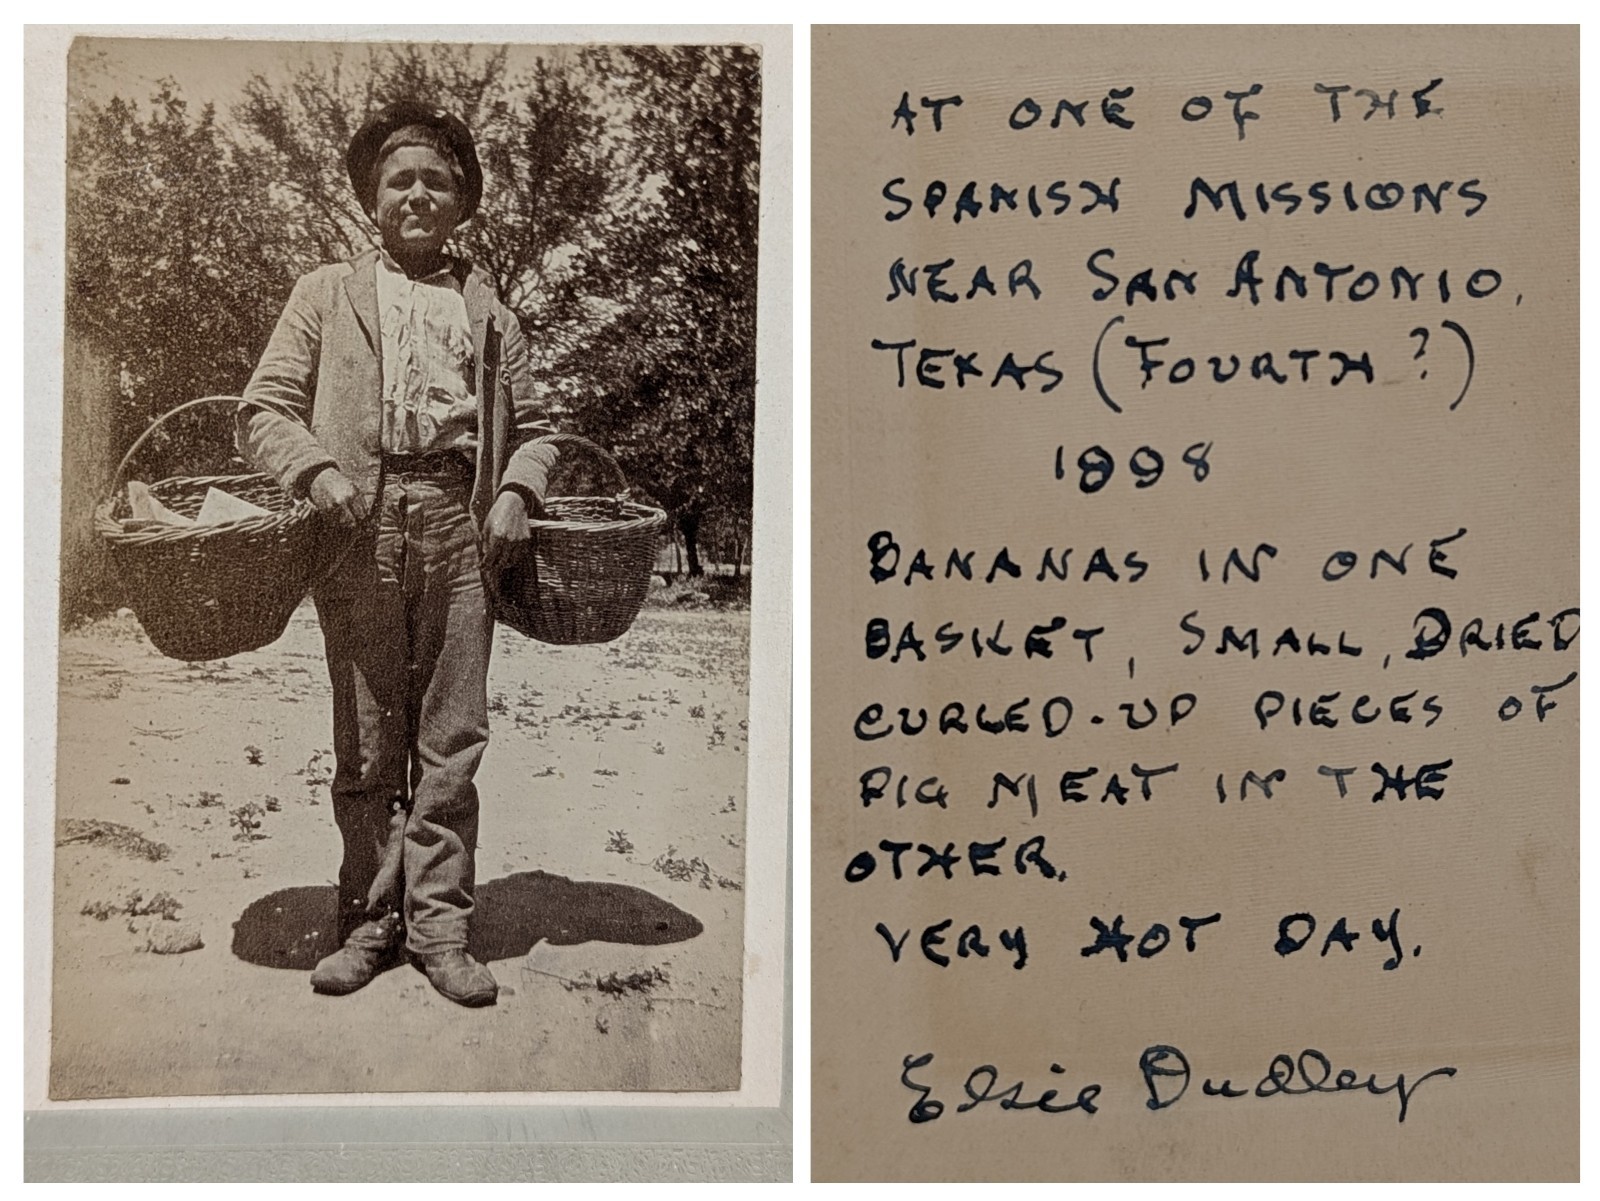 AT ONE OF THE
SPANISH MISSIONS
NEAR SAN ANTONIO,
TEXAS (FOURTH?)
1898
BANANAS IN ONE
BASKET, SMALL, DRIED
CURLED-UP PIECES OF
PIG MEAT IN THE
OTHER.
VERY HOT DAY.
Elsie Dudley